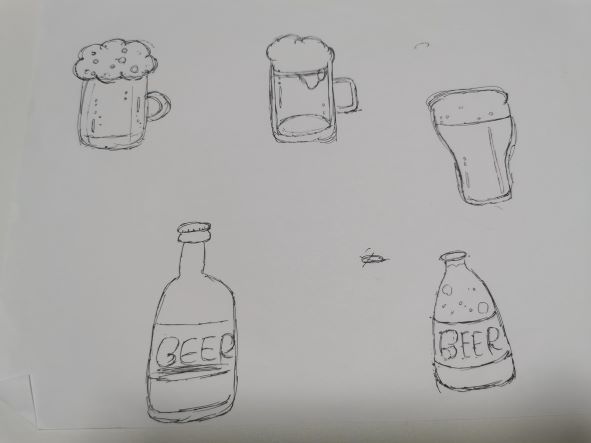 BEER
BEER